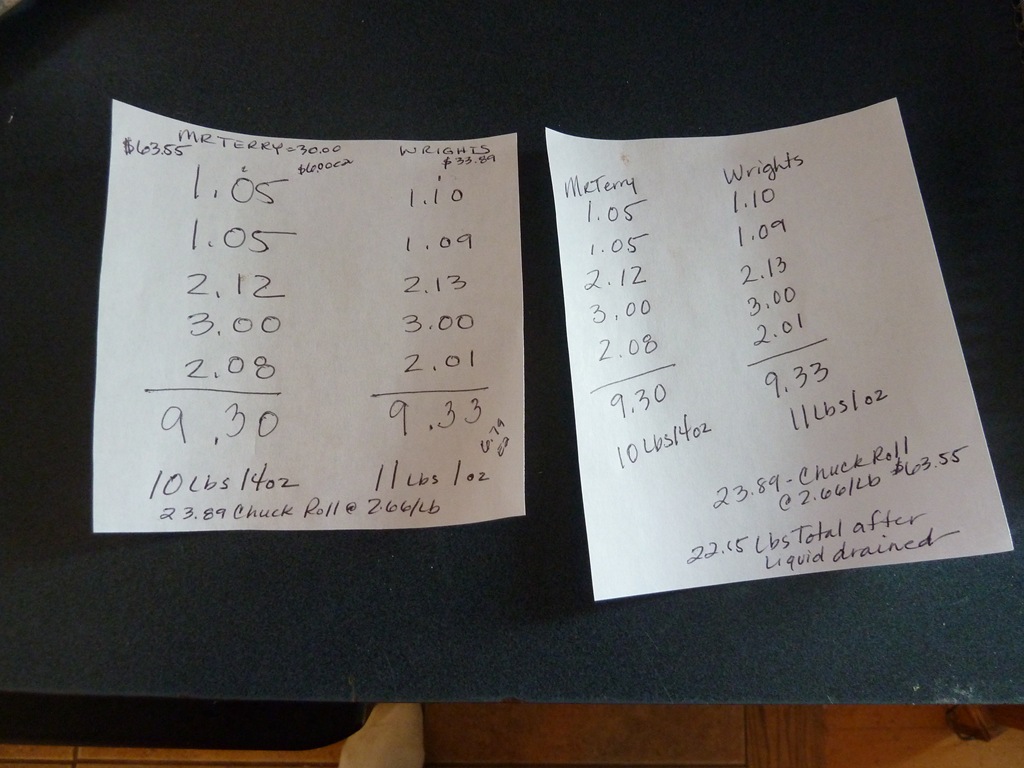 MR TERRY = 30.00 WRIGHTS
$63.55 $33.89
1.05 1.10
1.05 1.09
2.12 2.13
3.00 3.00
2.08 2.01
9.30 9.33
10 Lbs 14oz 11 Lbs 1oz
23.89 Chuck Roll @ 2.66/Lb
MR Terry Wrights
1.05 1.10
1.05 1.09
2.12 2.13
3.00 3.00
2.08 2.01
9.30 9.33
10 Lbs 14oz 11 Lbs 1oz
23.89 - Chuck Roll
@ 2.66/Lb $63.55
22.15 Lbs Total after
Liquid drained